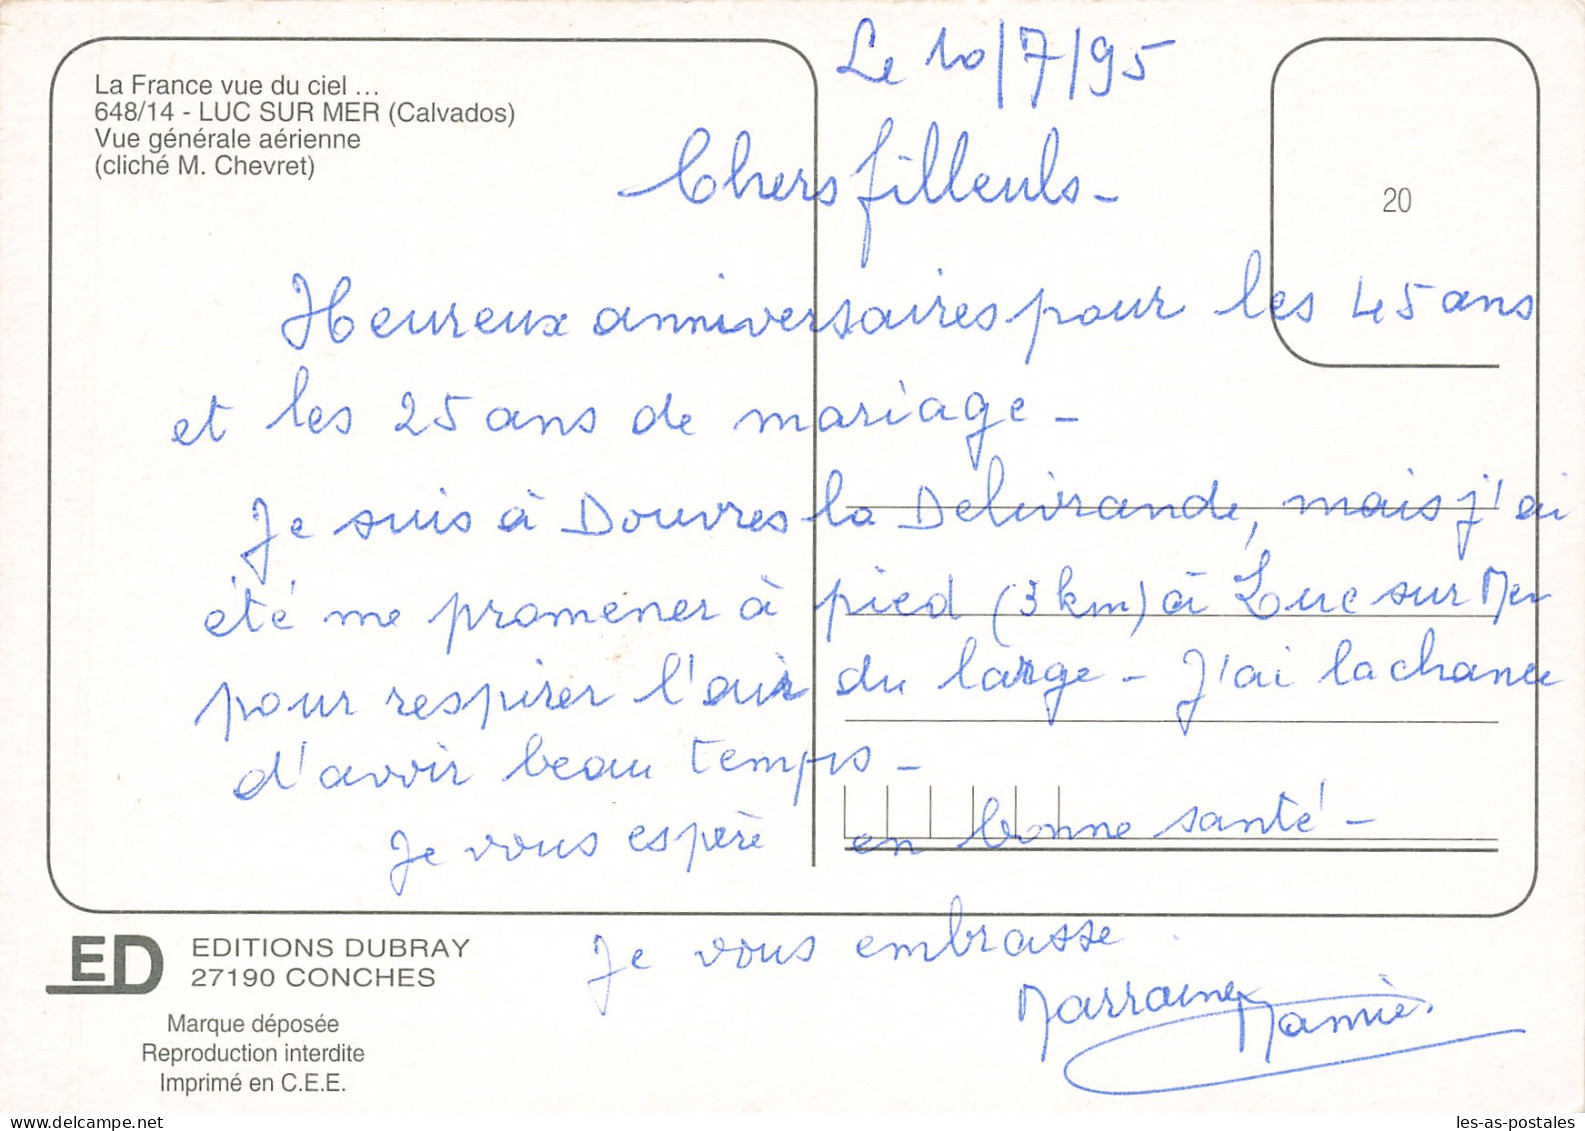 La France vue du ciel ...
648/14 - LUC SUR MER (Calvados)
Vue générale aérienne
(cliché M. Chevret)
20
Le 10/7/95
Chers filleuls -
Heureux anniversaires pour les 45 ans
et les 25 ans de mariage -
Je suis à Douvres la Delivrande, mais j'ai
été me promener à pied (3 km) à Luc sur Mer
pour respirer l'air du large - J'ai la chance
d'avoir beau temps -
Je vous espère en bonne santé -
Je vous embrasse.
Marraine Mamie.
ED
EDITIONS DUBRAY
27190 CONCHES
Marque déposée
Reproduction interdite
Imprimé en C.E.E.
les-as-postales
delcampe.net